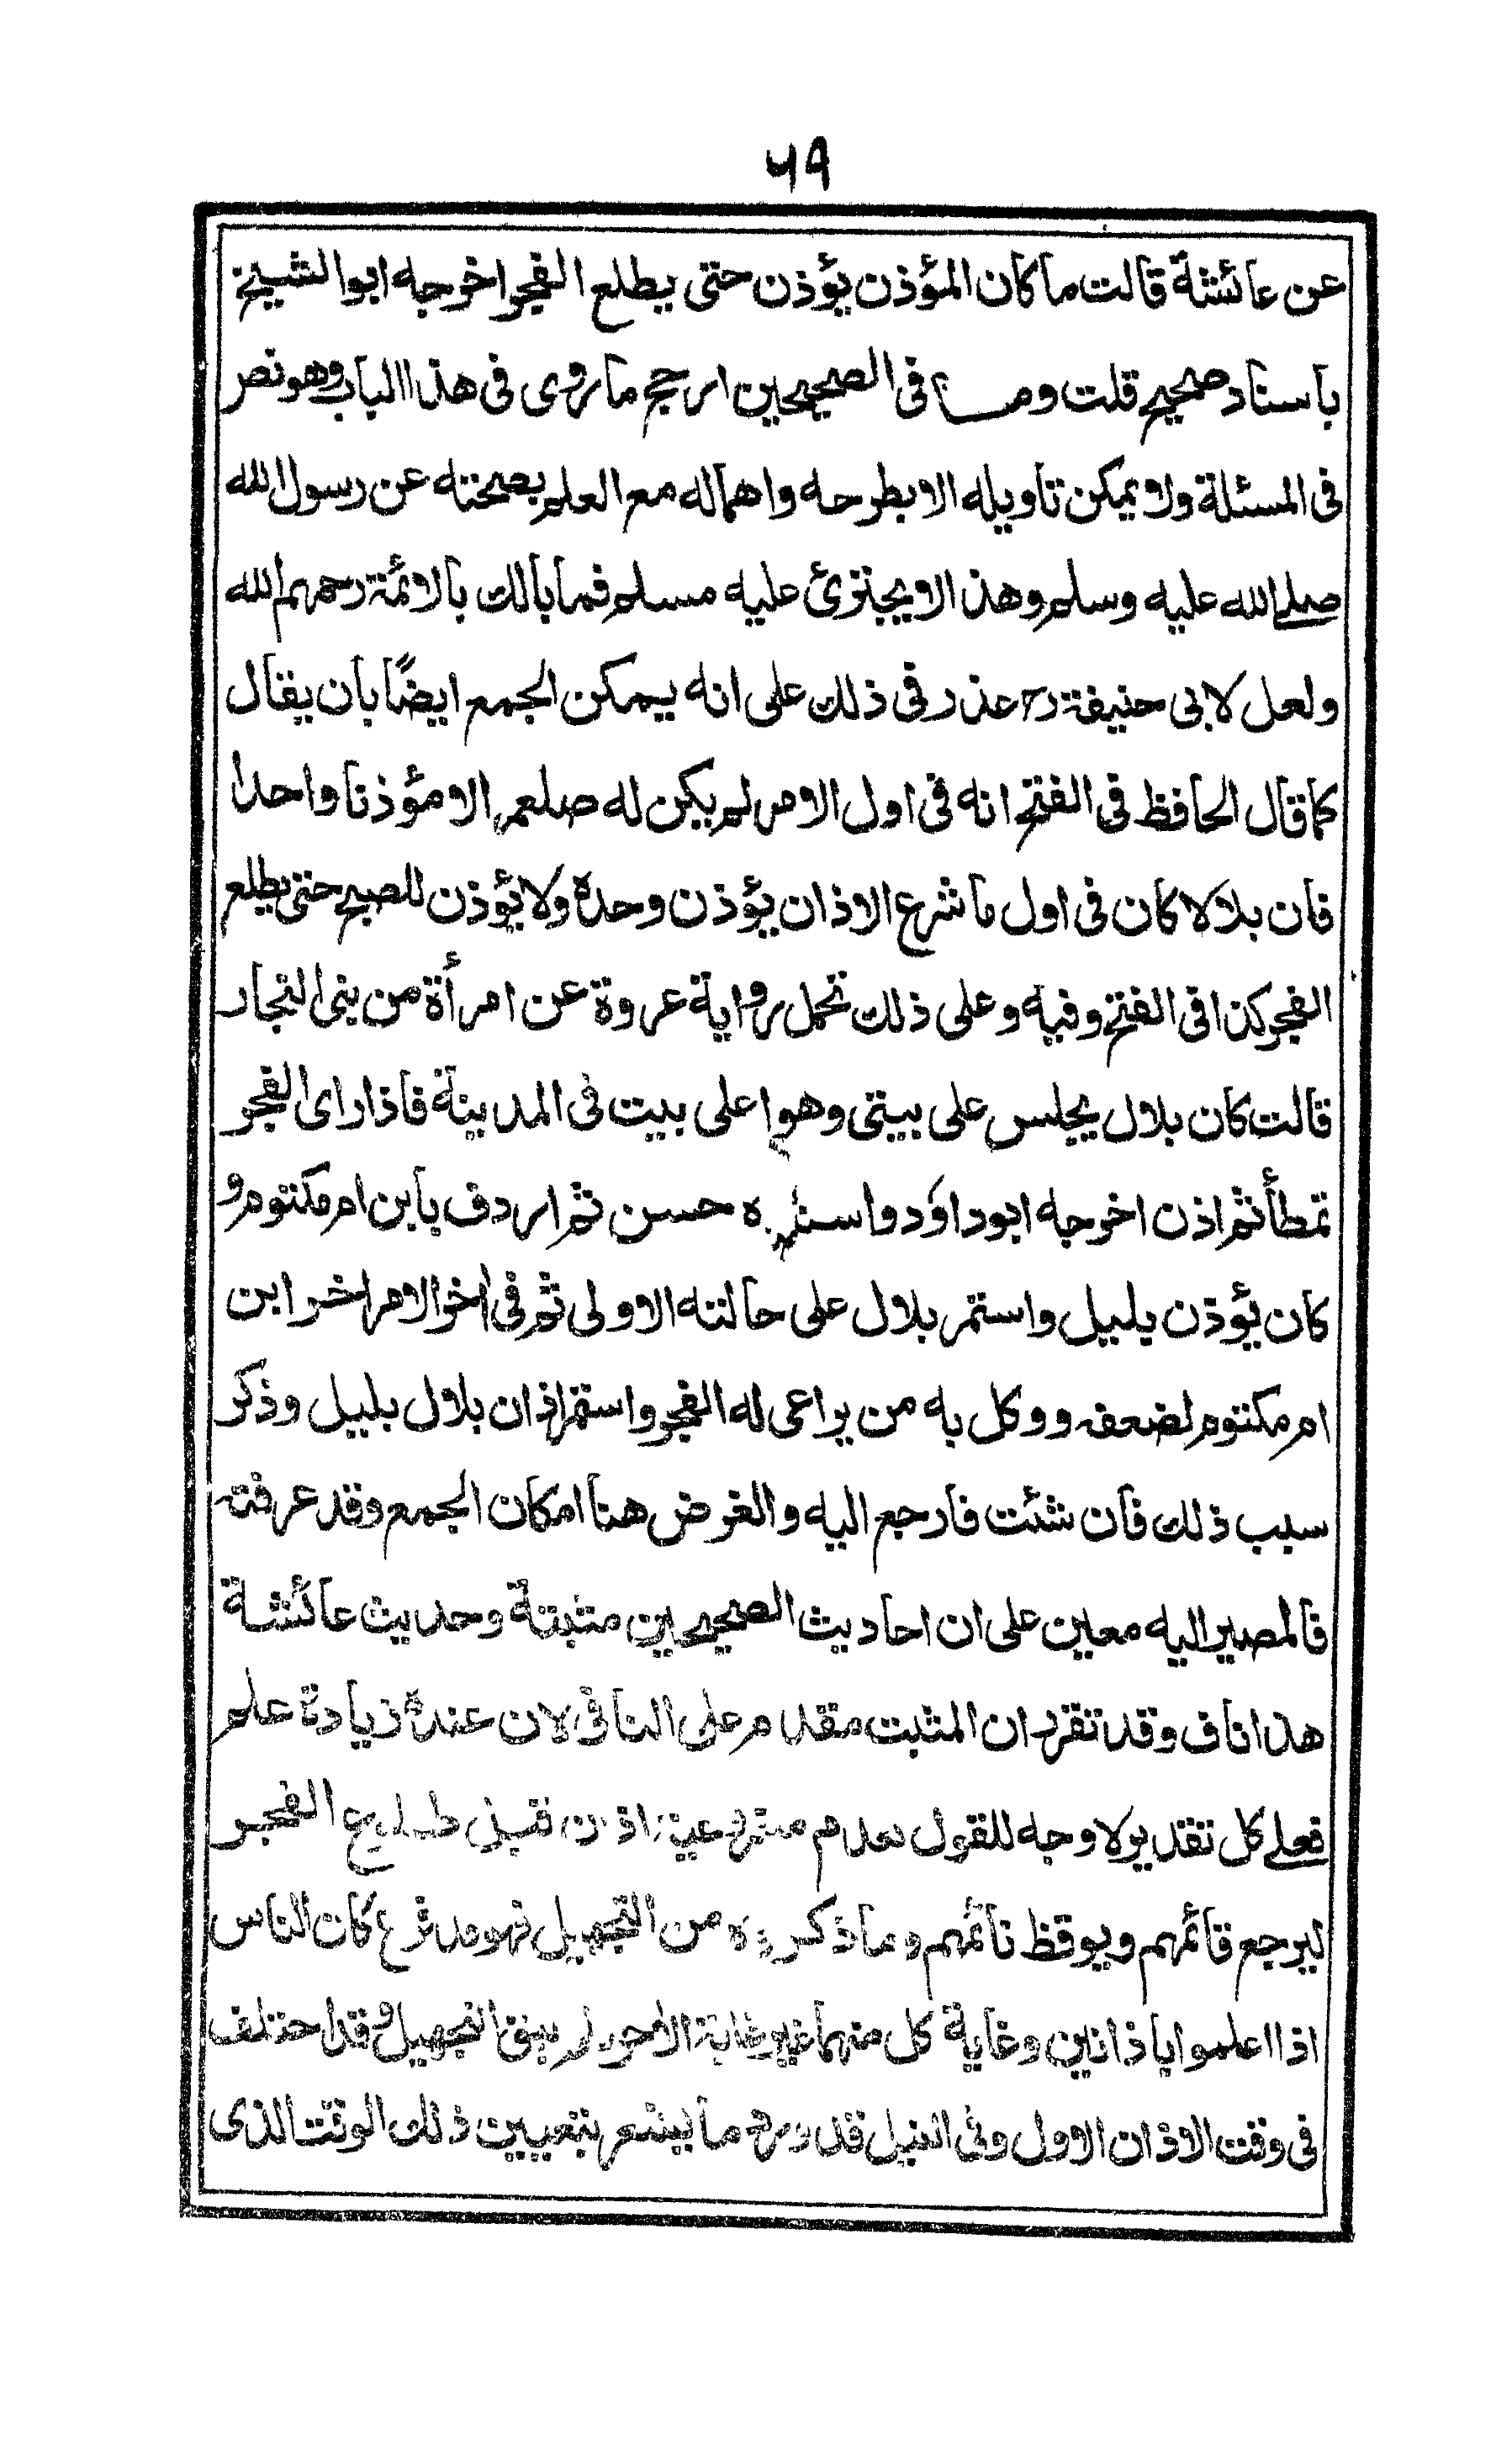 ٦٩
عن عائشة قالت ما كان المؤذن يؤذن حتى يطلع الفجر اخرجه ابو الشيخ
باسناد صحيح قلت وما فى الصحيحين ارجح ما روى فى هذا الباب وهو نص
فى المسئلة ولا يمكن تاويله الا بطرحه واهماله مع العلم بصحته عن رسول الله
صلى الله عليه وسلم وهذا لا يجتزئ عليه مسلم فما بالك بالائمة رحمهم الله
ولعل لابى حنيفة رح عذر فى ذلك على انه يمكن الجمع ايضًا بان يقال
كما قال الحافظ فى الفتح انه فى اول الامر لم يكن له صلعم الا مؤذنا واحدا
فان بلالا كان فى اول ما شرع الاذان يؤذن وحده ولا يؤذن للصبح حتى يطلع
الفجر كذا فى الفتح وفيه وعلى ذلك تحمل رواية عروة عن امرأة من بنى النجار
قالت كان بلال يجلس على بيتى وهو اعلى بيت فى المدينة فاذا راى الفجر
تمطأ ثم اذن اخرجه ابو داؤد واسناده حسن ثم اردف بابن ام مكتوم و
كان يؤذن بليل واستمر بلال على حالته الاولى ثم فى أخر الامر اخر ابن
ام مكتوم لضعفه ووكل به من يراعى له الفجر واستقر اذان بلال بليل وذكر
سبب ذلك فان شئت فارجع اليه والغرض هنا امكان الجمع وقد عرفته
فالمصير اليه معين على ان احاديث الصحيحين مثبتة وحديث عائشة
هذا ناف وقد تقرر ان المثبت مقدم على النافى لان عنده زيادة علم
فعلى كل تقدير لا وجه للقول بعدم مشروعية اذان قبل طلوع الفجر
ليرجع قائمهم ويوقظ نائمهم وما ذكروه من التجهيل فهو مدفوع كان الناس
اذا اعلموا باذانين وغاية كل منهما غير غاية الاخر لم يبق التجهيل وقد اختلف
فى وقت الاذان الاول وفى النيل قد ورد ما يشعر بتعيين ذلك الوقت الذى